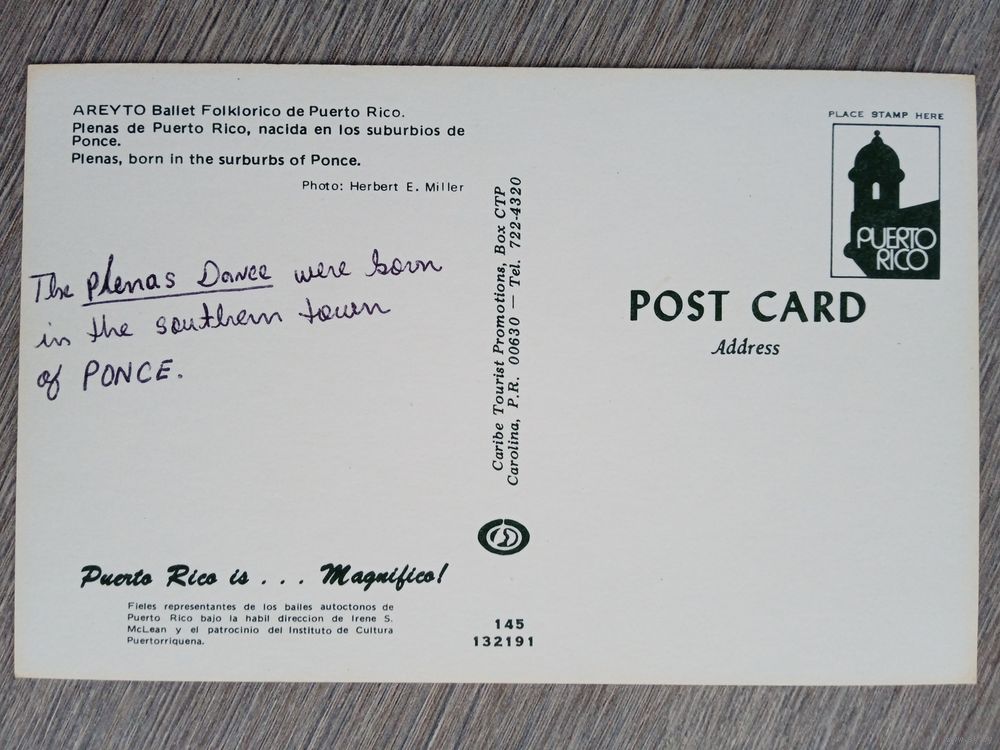 AREYTO Ballet Folklorico de Puerto Rico.
Plenas de Puerto Rico, nacida en los suburbios de
Ponce.
Plenas, born in the surburbs of Ponce.
Photo: Herbert E. Miller
The Plenas Dance were born
in the southern town
of PONCE.
Puerto Rico is . . . Magnifico!
Fieles representantes de los bailes autoctonos de
Puerto Rico bajo la habil direccion de Irene S.
McLean y el patrocinio del Instituto de Cultura
Puertorriquena.
Caribe Tourist Promotions, Box CTP
Carolina, P.R. 00630 — Tel. 722-4320
145
132191
PLACE STAMP HERE
PUERTO
RICO
POST CARD
Address